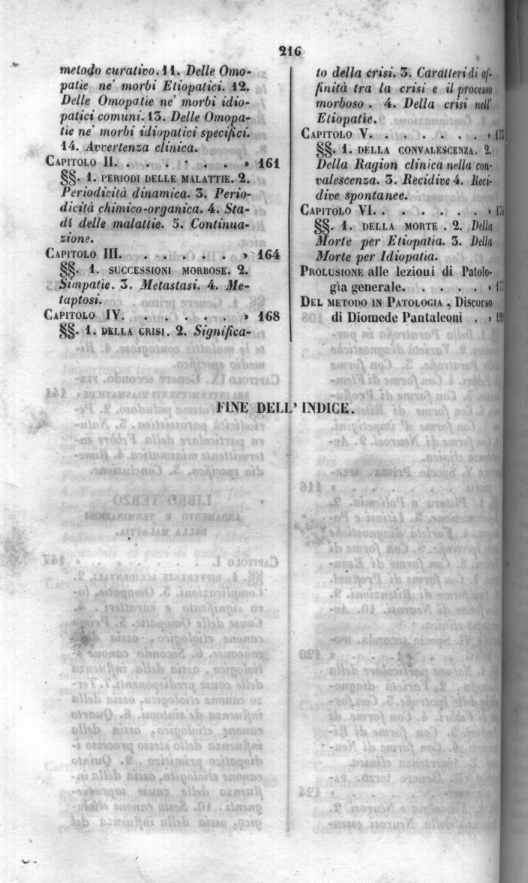 216
metodo curativo. 11. Delle Omo-
patie ne' morbi Etiopatici. 12.
Delle Omopatie ne' morbi idio-
patici comuni. 13. Delle Omopa-
tie ne' morbi idiopatici specifici.
14. Avvertenza clinica.
CAPITOLO II. . . . . . . » 161
§§. 1. PERIODI DELLE MALATTIE. 2.
Periodicità dinamica. 3. Perio-
dicità chimico-organica. 4. Sta-
di delle malattie. 5. Continua-
zione.
CAPITOLO III. . . . . . . » 164
§§. 1. SUCCESSIONI MORBOSE. 2.
Simpatie. 3. Metastasi. 4. Me-
taptosi.
CAPITOLO IV. . . . . . . » 168
§§. 1. DELLA CRISI. 2. Significa-
to della crisi. 3. Caratteri di af-
finità tra la crisi e il processo
morboso. 4. Della crisi nell'
Etiopatie.
CAPITOLO V. . . . . . . »
§§. 1. DELLA CONVALESCENZA. 2.
Della Ragion clinica nella con-
valescenza. 3. Recidive 4. Reci-
dive spontanee.
CAPITOLO VI. . . . . . .
§§. 1. DELLA MORTE. 2. Della
Morte per Etiopatia. 3. Della
Morte per Idiopatia.
PROLUSIONE alle lezioni di Patolo-
gia generale. . . . . . . »
DEL METODO IN PATOLOGIA, Discorso
di Diomede Pantaleoni . »
FINE DELL' INDICE.